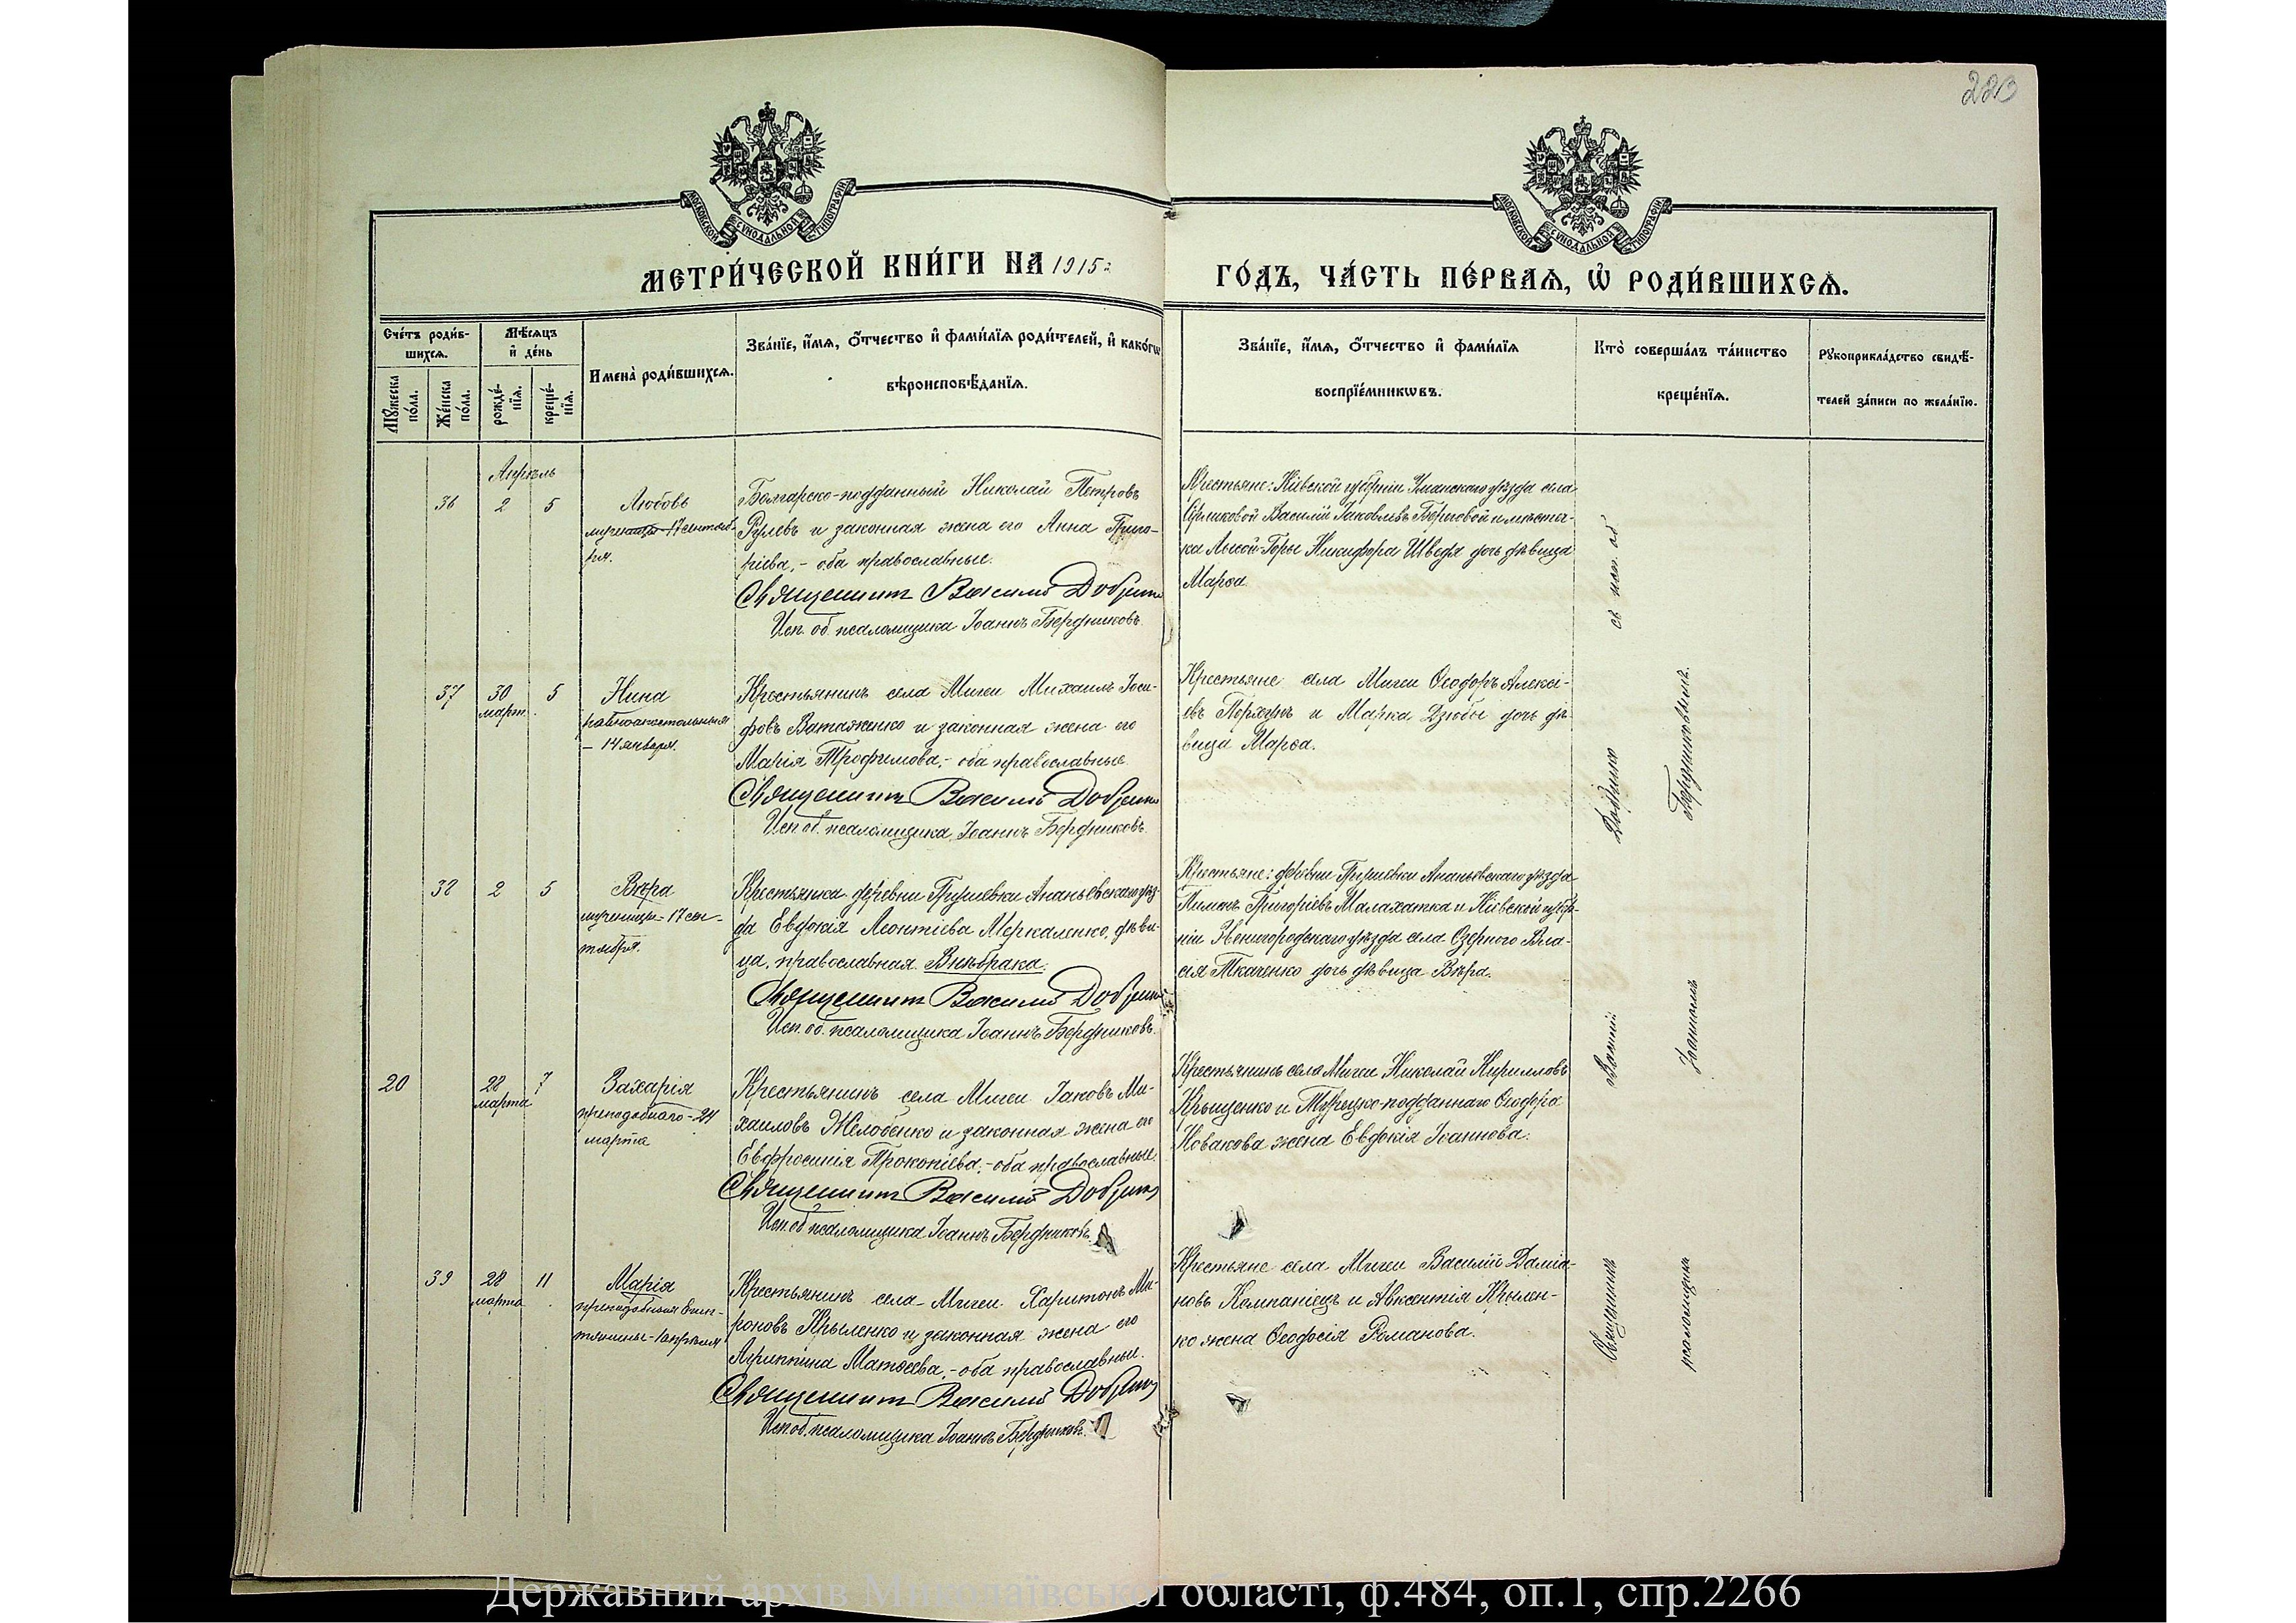 223
МОСКОВСКОЙ СѴНОДАЛЬНОЙ ТИПОГРАФІИ
МОСКОВСКОЙ СѴНОДАЛЬНОЙ ТИПОГРАФІИ
МЕТРИ́ЧЕСКОЙ КНИ́ГИ НА 1915 г.
ГО́ДЪ, ЧА́СТЬ ПЕ́РВАѦ, Ѡ҆ РОДИ́ВШИХСѦ.
Сче́тъ роди́в-
шихсѧ.
Мѣ́сѧцъ
и҆ де́нь
Имена̀ роди́вшихсѧ.
Зва́нїе, и҆́мѧ, ѻ҆́тчество и҆ фами́лїѧ роди́телей, и҆ како́гѡ
вѣроисповѣ́данїѧ.
Зва́нїе, и҆́мѧ, ѻ҆́тчество и҆ фами́лїѧ
воспрїе́мникѡвъ.
Кто̀ соверша́лъ та́инство
креще́нїѧ.
Рꙋкоприкла́дство свидѣ́-
телей за́писи по жела́нїю.
Мꙋ́жеска
по́ла.
Же́нска
по́ла.
рожде́-
нїѧ.
креще́-
нїѧ.
Апрѣль
36 2 5
Любовь
мученицы-17 сентяб-
ря.
Болгарско-подданный Николай Петровъ
Рулевъ и законная жена его Анна Григо-
ріева,- оба православные.
Священникъ Василій Добрин
Исп. об. псаломщика Іоаннъ Бердниковъ.
Крестьяне: Кіевской губерніи Уманскаго уѣзда села
Василій Іаковлевъ Береговой и мѣстеч-
ка Лысой-Горы Никифора Шведа дочь дѣвица
Марѳа
37 30 5
март.
Нина
равноапостольныя
- 14 января.
Крестьянинъ села Мигеи Михаилъ Іоси-
фовъ Ватаженко и законная жена его
Марія Трофимова,- оба православные.
Священникъ Василій Добрин
Исп. об. псаломщика Іоаннъ Бердниковъ.
Крестьяне села Мигеи Ѳеодоръ Алексі-
евъ Порхунъ и Марка Дзюбы дочь дѣ-
вица Марѳа.
38 2 5
Вѣра
мученицы-17 сен-
тября.
Крестьянка деревни Грушевки Ананьевскаго уѣз-
да Евдокія Леонтіева Меркаленко, дѣви-
ца, православная. Внѣбрака.
Священникъ Василій Добрин
Исп. об. псаломщика Іоаннъ Бердниковъ.
Крестьяне: деревни Грушевки Ананьевскаго уѣзда
Пименъ Григоріевъ Малахатка и Кіевской губер-
ніи Звенигородскаго уѣзда села Озерного Вла-
сія Ткаченко дочь дѣвица Вѣра.
20 28 7
марта
Захарія
преподобнаго-24
марта
Крестьянинъ села Мигеи Іаковъ Ми-
хаиловъ Желобенко и законная жена его
Евфросинія Прокопіева,-оба православные.
Священникъ Василій Добрин
Исп. об. псаломщика Іоаннъ Бердниковъ.
Крестьянинъ села Мигеи Николай Кирилловъ
Крыщенко и Турецко-подданнаго Ѳеодора
Новакова жена Евдокія Іоаннова.
39 28 11
марта
Марія
преподобныя Егип-
тянины-1 апрѣля
Крестьянинъ села Мигеи Харитонъ Ми-
роновъ Крыленко и законная жена его
Агриппина Матѳеева,-оба православные.
Священникъ Василій Добрин
Исп. об. псаломщика Іоаннъ Бердниковъ.
Крестьяне села Мигеи Василій Даміа-
новъ Компаніецъ и Авксентія Крылен-
ко жена Ѳеодосія Романова.
Священникъ Василій съ исп. об.
псаломщика Іоанномъ Бердниковымъ.
Державний архів Миколаївської області, ф.484, оп.1, спр.2266